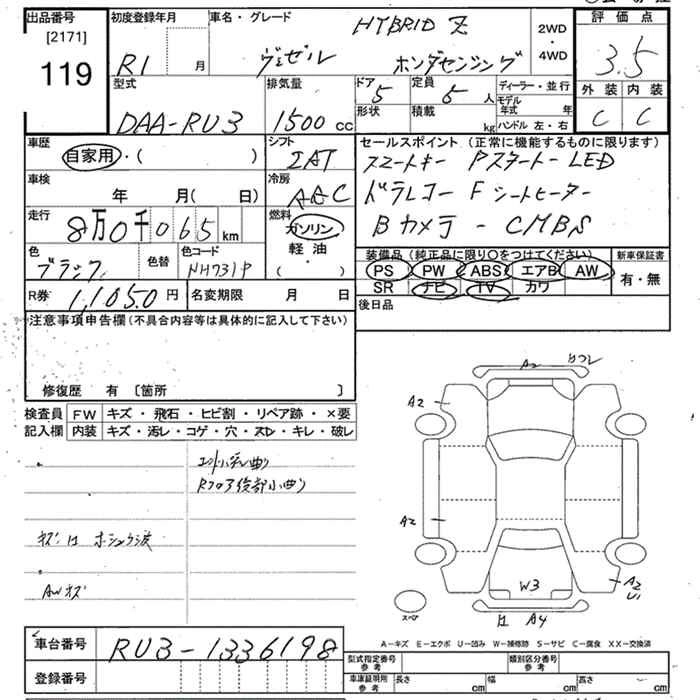 出品番号 初度登録年月 車名・グレード HYBRID Z 2WD・4WD 評価点
[2171]
119
R1 月 ヴェゼル ホンダセンシング 3.5
型式 排気量 ドア 5 定員 5人 ディーラー・並行 外装 内装
形状 積載 kg モデル年式 年
DAA-RU3 1500cc ハンドル 左・右 C C
車歴 シフト セールスポイント (正常に機能するものに限ります)
自家用・( ) IAT スマートキー Pスタート LED
車検 冷房 ドラレコー Fシートヒーター
年 月( 日) AAC Bカメラ - CMBS
走行 燃料
8万0千065km ガソリン
軽油
( ・ )
色 色替 色コード 装備品(純正品に限り○をつけてください) 新車保証書
ブラック NH731P PS PW ABS エアB AW 有・無
R券 11,050円 名変期限 月 日 SR ナビ TV カワ
後日品
注意事項申告欄(不具合内容等は具体的に記入して下さい)
修復歴 有 [箇所 ]
検査員 FW キズ・飛石・ヒビ割・リペア跡・×要
記入欄 内装 キズ・汚レ・コゲ・穴・スレ・キレ・破レ
Rフロア後部小曲り
キズ
AWキズ
A2
A2
A2
W3
A2
U1
A4
スペア
A−キズ E−エクボ U−凹み W−補修跡 S−サビ C−腐食 XX−交換済
車台番号 RU3-1336198
登録番号
型式指定番号 参考 類別区分番号 参考
車庫証明用 参考 長さ cm 幅 cm 高さ cm